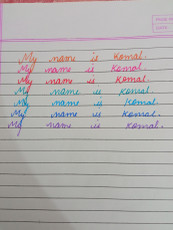 My name is Komal.
My name is Komal.
My name is Komal.
My name is Komal.
My name is Komal.
My name is Komal.
My name is Komal.